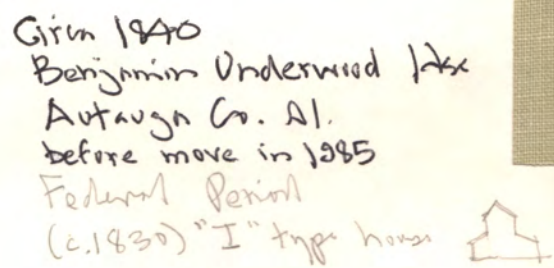 Circa 1840
Benjamin Underwood Hse
Autauga Co. Al.
before move in 1985
Federal Period
(c.1830) "I" type house